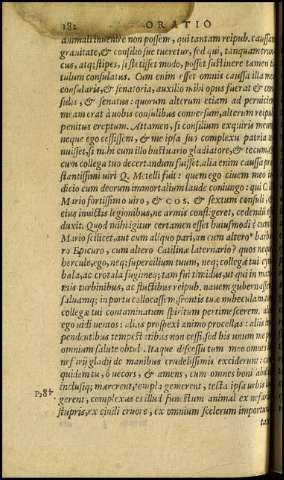 182 ORATIO
animali inuenire non possem, qui tantam reipub. caussam
grauitate, & consilio sue tueretur, sed qui, tanquam truncus
cus, atq; stipes, si stetisset modo, posset sustinere tamen ti-
tulum consulatus. Cum enim esset omnis caussa illa mea
consularis, & senatoria, auxilio mihi opus fuerat & con-
sulis, & senatus: quorum alterum etiam ad perniciem
meam erat à uobis consulibus conuersum, alterum reipub.
penitus ereptum. Attamen, si consilium exquiris meum,
neque ego cessissem, & me ipsa suo complexu patria te-
nuisset, si mihi cum illo bustuario gladiatore, & tecum, &
cum collega tuo decertandum fuisset. alia enim caussa præ-
stantissimi uiri Q. Metelli fuit: quem ego ciuem meo iu-
dicio cum deorum immortalium laude coniungo: qui C.
Mario fortissimo uiro, & COS. & sextum consuli, &
eius inuictis legionibus, ne armis confligeret, cedendum
duxit. Quod mihi igitur certamen esset huiusmodi? cum C.
Mario scilicet, aut cum aliquo pari, an cum altero barba-
ro Epicuro, cum altero Catilinæ laternario? quos neque
hercule, ego, neq; supercilium tuum, neq; collegæ tui cym-
bala, ac crotala fugi: neq; tam fui timidus, ut qui in maxi-
mis turbinibus, ac fluctibus reipub. nauem gubernassem,
saluamq; in portu collocassem, frontis tuæ nubeculam, aut
collegæ tui contaminatum spiritum pertimescerem. alios
ego uidi uentos: alias prospexi animo procellas: aliis im-
pendentibus tempestatibus non cessi, sed his unum me pro
omnium salute obtuli. Itaque discessu tum meo omnes
nefarij gladij de manibus crudelissimis exciderunt: cum
quidem tu, ô uecors, & amens, cum omnes boni abditi,
inclusiq; mœrerent, templa gemerent, tecta ipsa urbis lu-
gerent, complexus es illud funestum animal ex nefariis
stupris, ex ciuili cruore, ex omnium scelerum importuni-
ta